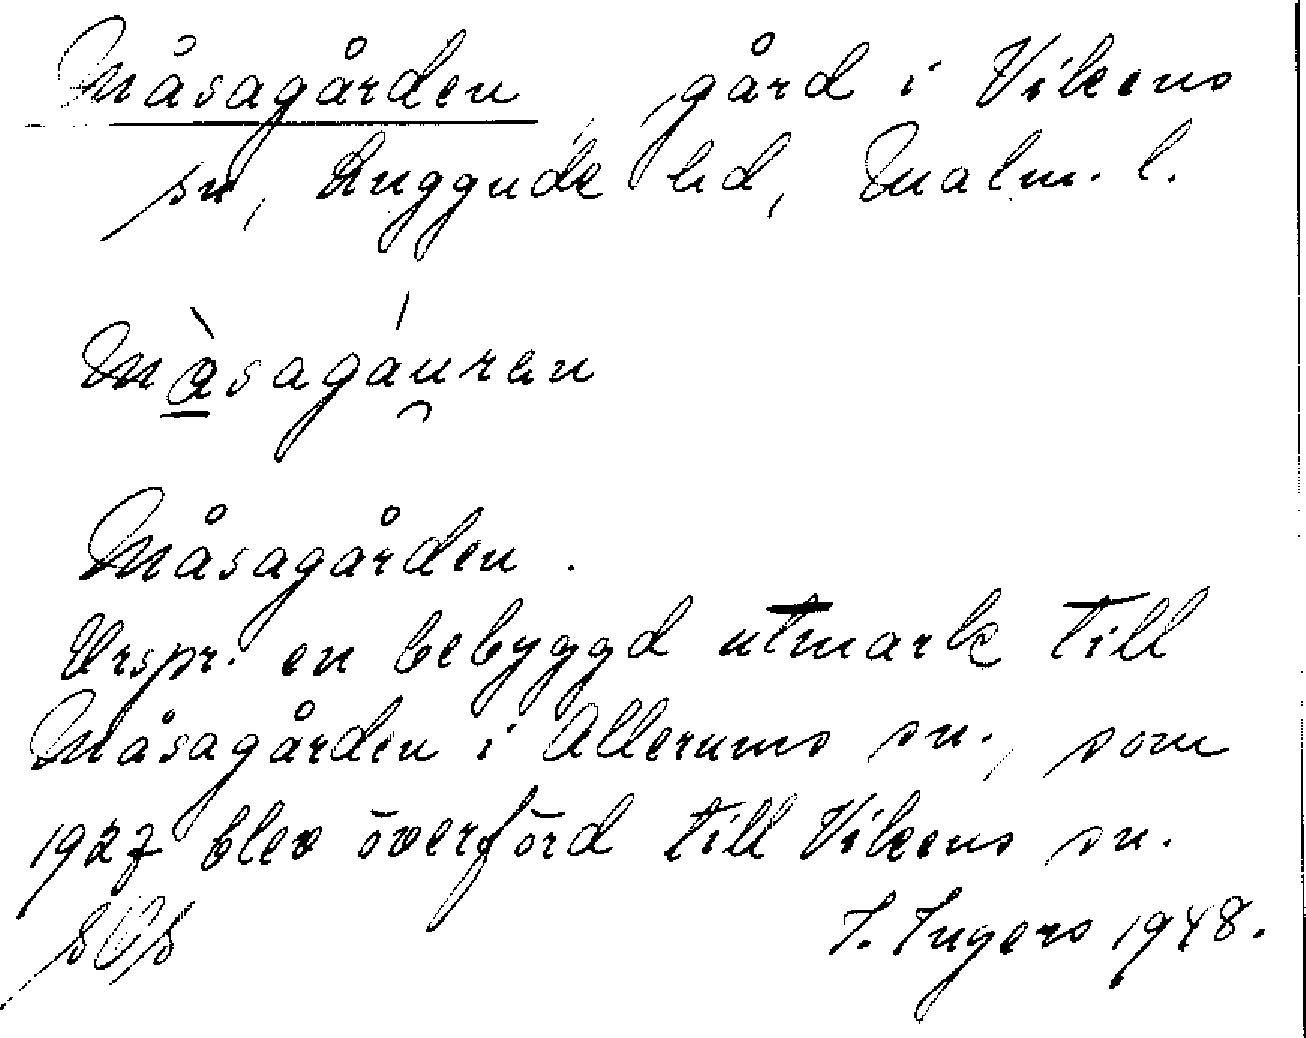 Måsagården, gård i Vikens
sn, Luggude hd, Malm. l.
Måsagården.
Urspr. en bebyggd utmark till
Måsagården i Allerums sn., som
1927 blev överförd till Vikens sn.
I. Ingers 1948.